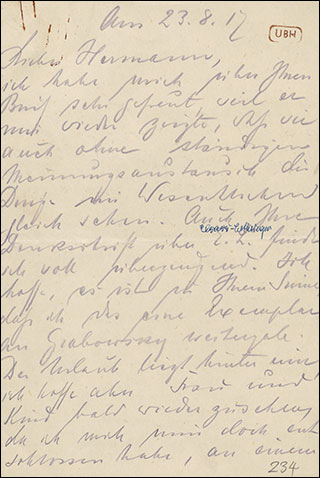 Am 23.8.17
UBH
Lieber Hermann,
ich habe mich über Ihren
Brief sehr gefreut, weil er
mir wieder zeigte, daß wir
auch ohne ständigen
Meinungsaustausch die
Dinge im Wesentlichen
gleich sehen. Auch Ihre
Denkschrift über E.L. finde
ich voll überzeugend. Ich
hoffe, es ist in Ihrem Sinne
daß ich das eine Exemplar
an Grabowsky weitergab.
Der Urlaub liegt hinter mir,
ich hoffe aber Frau und
Kind bald wiederzusehen,
da ich mich nun doch ent
schlossen habe, an einem
234